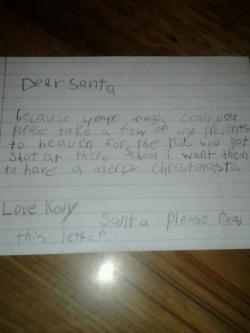 Dear santa
because your magic can you
please take a few of my presents
to heaven for the kids who got
shot at there school i want them
to have a mery christmas to.
Love Kody
Santa please read
this letter